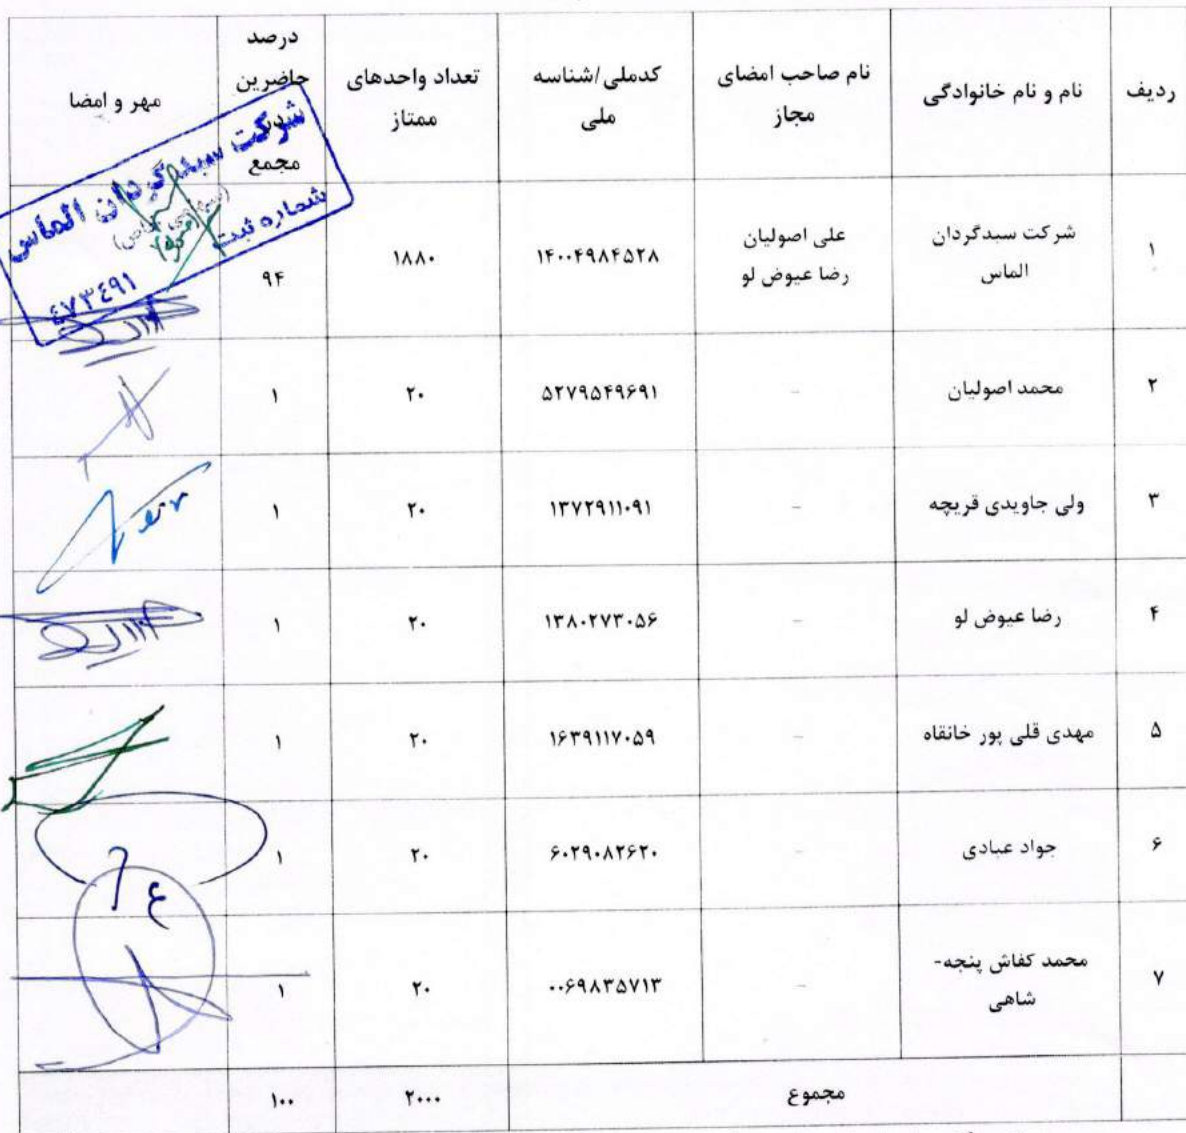 ردیف	نام و نام خانوادگی	نام صاحب امضای مجاز	کدملی/شناسه ملی	تعداد واحدهای ممتاز	درصد حاضرین در مجمع	مهر و امضا
۱	شرکت سبدگردان الماس	علی اصولیان رضا عیوض لو	۱۴۰۰۴۹۸۴۵۲۸	۱۸۸۰	۹۴
شرکت سبدگردان الماس
(سهامی خاص)
شماره ثبت
۴۷۳۴۹۱
۲	محمد اصولیان	-	۵۲۷۹۵۴۹۶۹۱	۲۰	۱
۳	ولی جاویدی قریچه	-	۱۳۷۲۹۱۱۰۹۱	۲۰	۱
۴	رضا عیوض لو	-	۱۳۸۰۲۷۳۰۵۶	۲۰	۱
۵	مهدی قلی پور خانقاه	-	۱۶۳۹۱۱۷۰۵۹	۲۰	۱
۶	جواد عبادی	-	۶۰۲۹۰۸۲۶۲۰	۲۰	۱
۷	محمد کفاش پنجه-شاهی	-	۰۰۶۹۸۳۵۷۱۳	۲۰	۱
مجموع	۲۰۰۰	۱۰۰